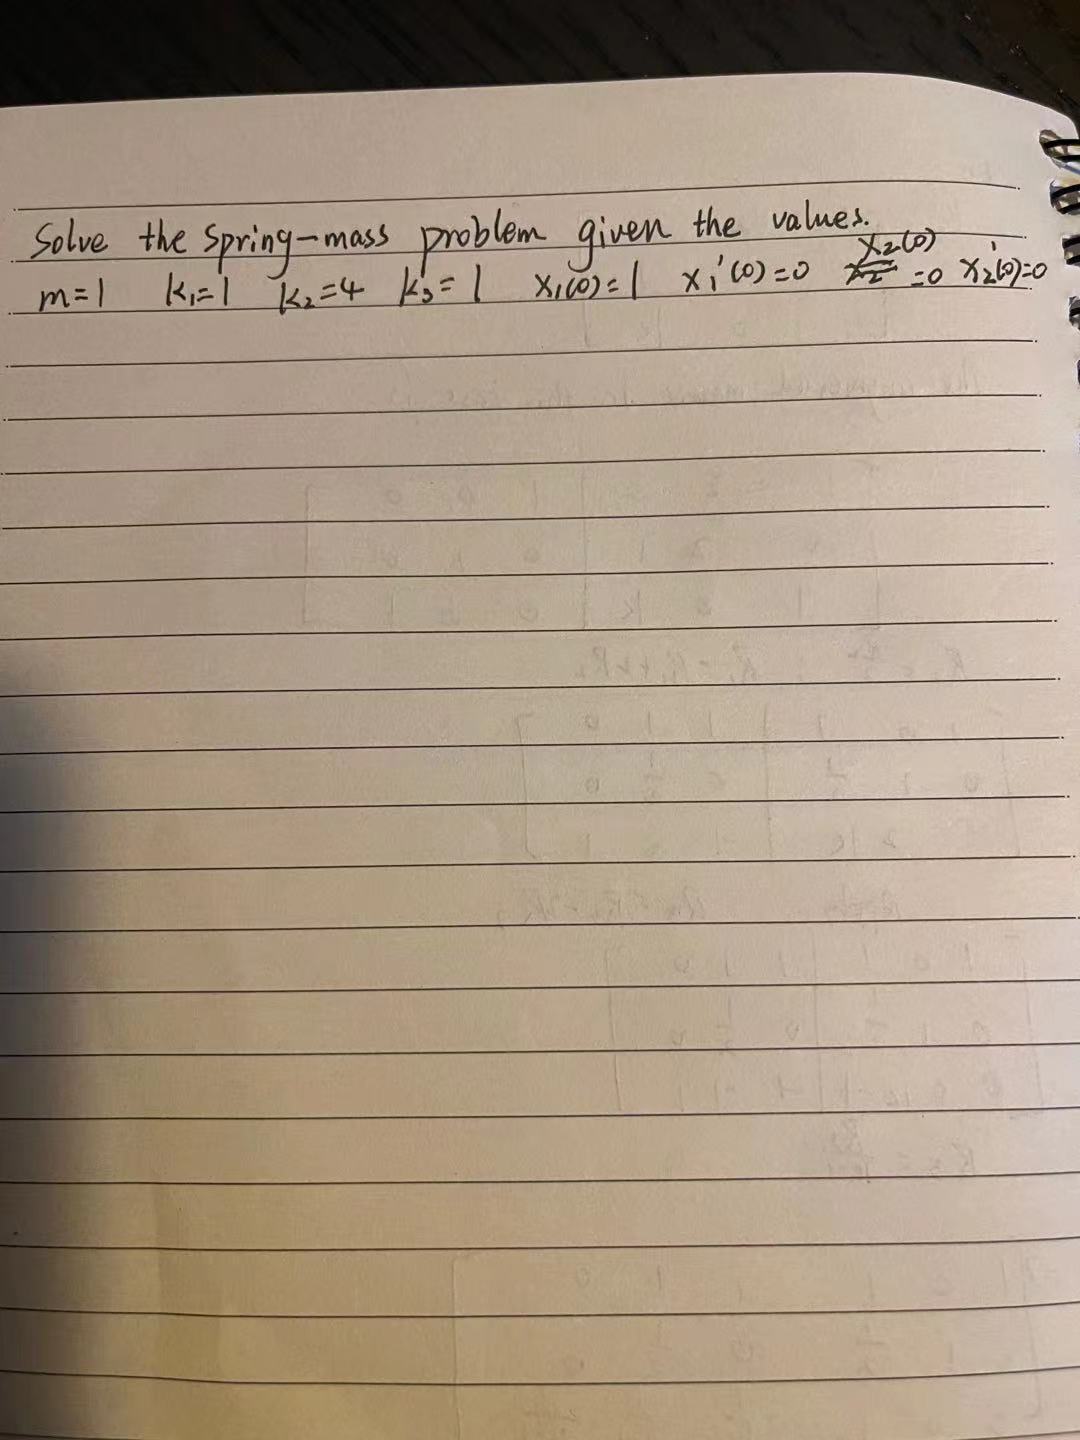 Solve the spring-mass problem given the values.
m=1 k₁=1 k₂=4 k₃=1 x₁(0)=1 x₁'(0)=0 x₂(0)=0 x₂'(0)=0